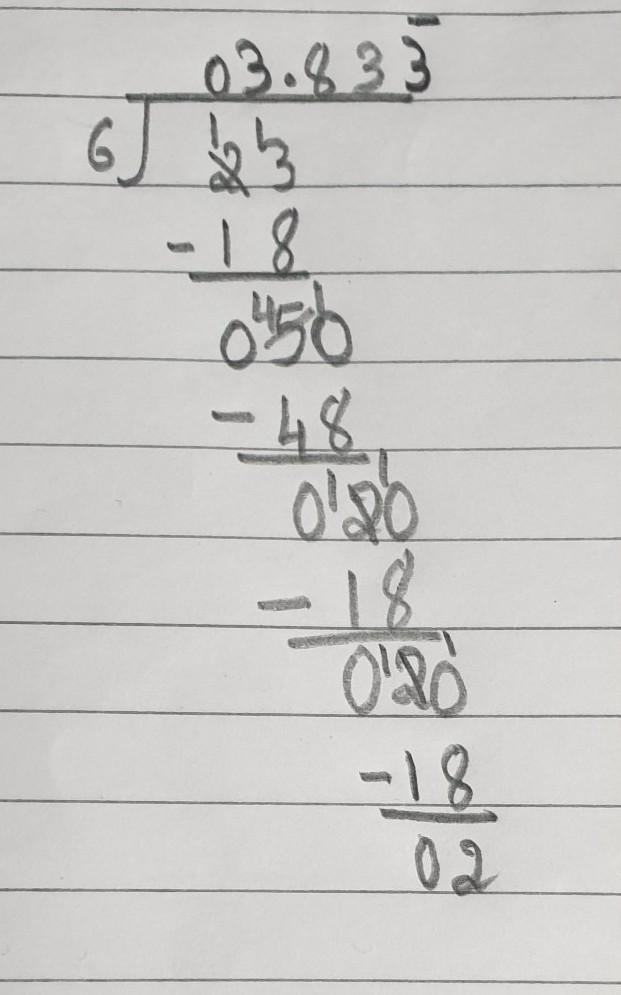 03.833̅
6 23
-18
050
-48
020
-18
020
-18
02